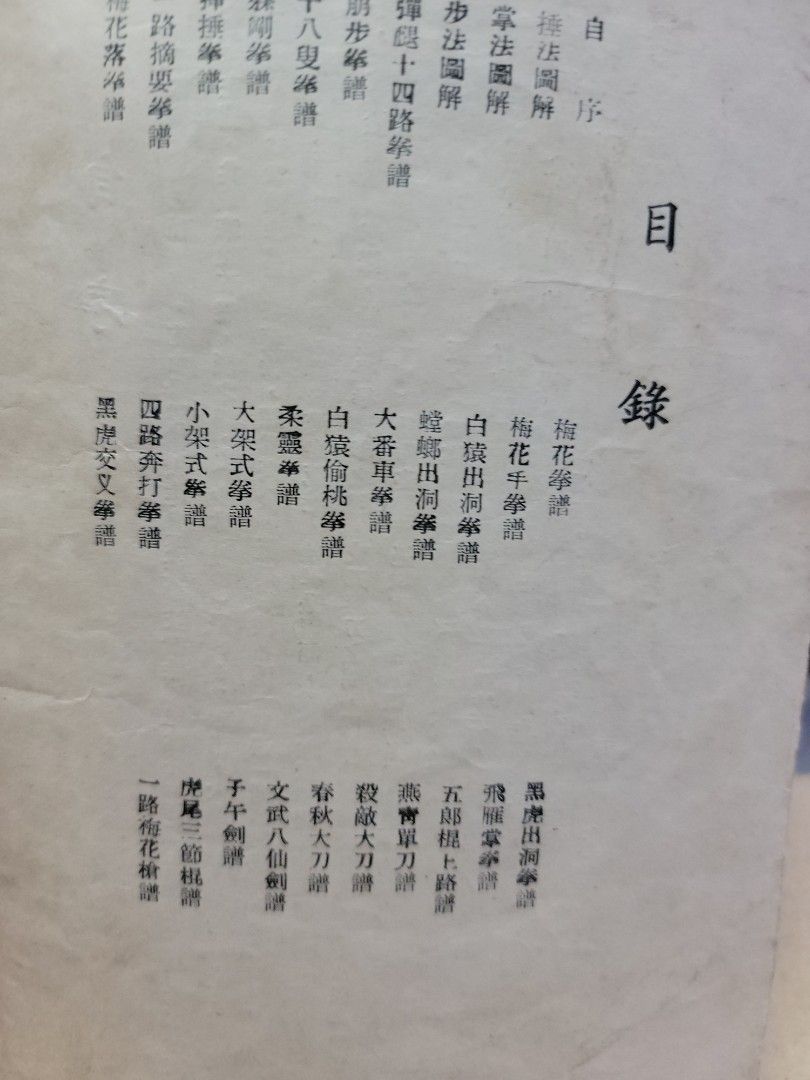 目錄
自序
捶法圖解
掌法圖解
步法圖解
彈腿十四路拳譜
崩步拳譜
十八叟拳譜
拳譜
捶拳譜
路摘要拳譜
梅花落拳譜
梅花拳譜
梅花手拳譜
白猿出洞拳譜
螳螂出洞拳譜
大番車拳譜
白猿偷桃拳譜
柔靈拳譜
大架式拳譜
小架式拳譜
四路奔打拳譜
黑虎交叉拳譜
黑虎出洞拳譜
飛雁掌拳譜
五郎棍上路譜
燕青單刀譜
殺敵大刀譜
春秋大刀譜
文武八仙劍譜
子午劍譜
虎尾三節棍譜
一路梅花槍譜